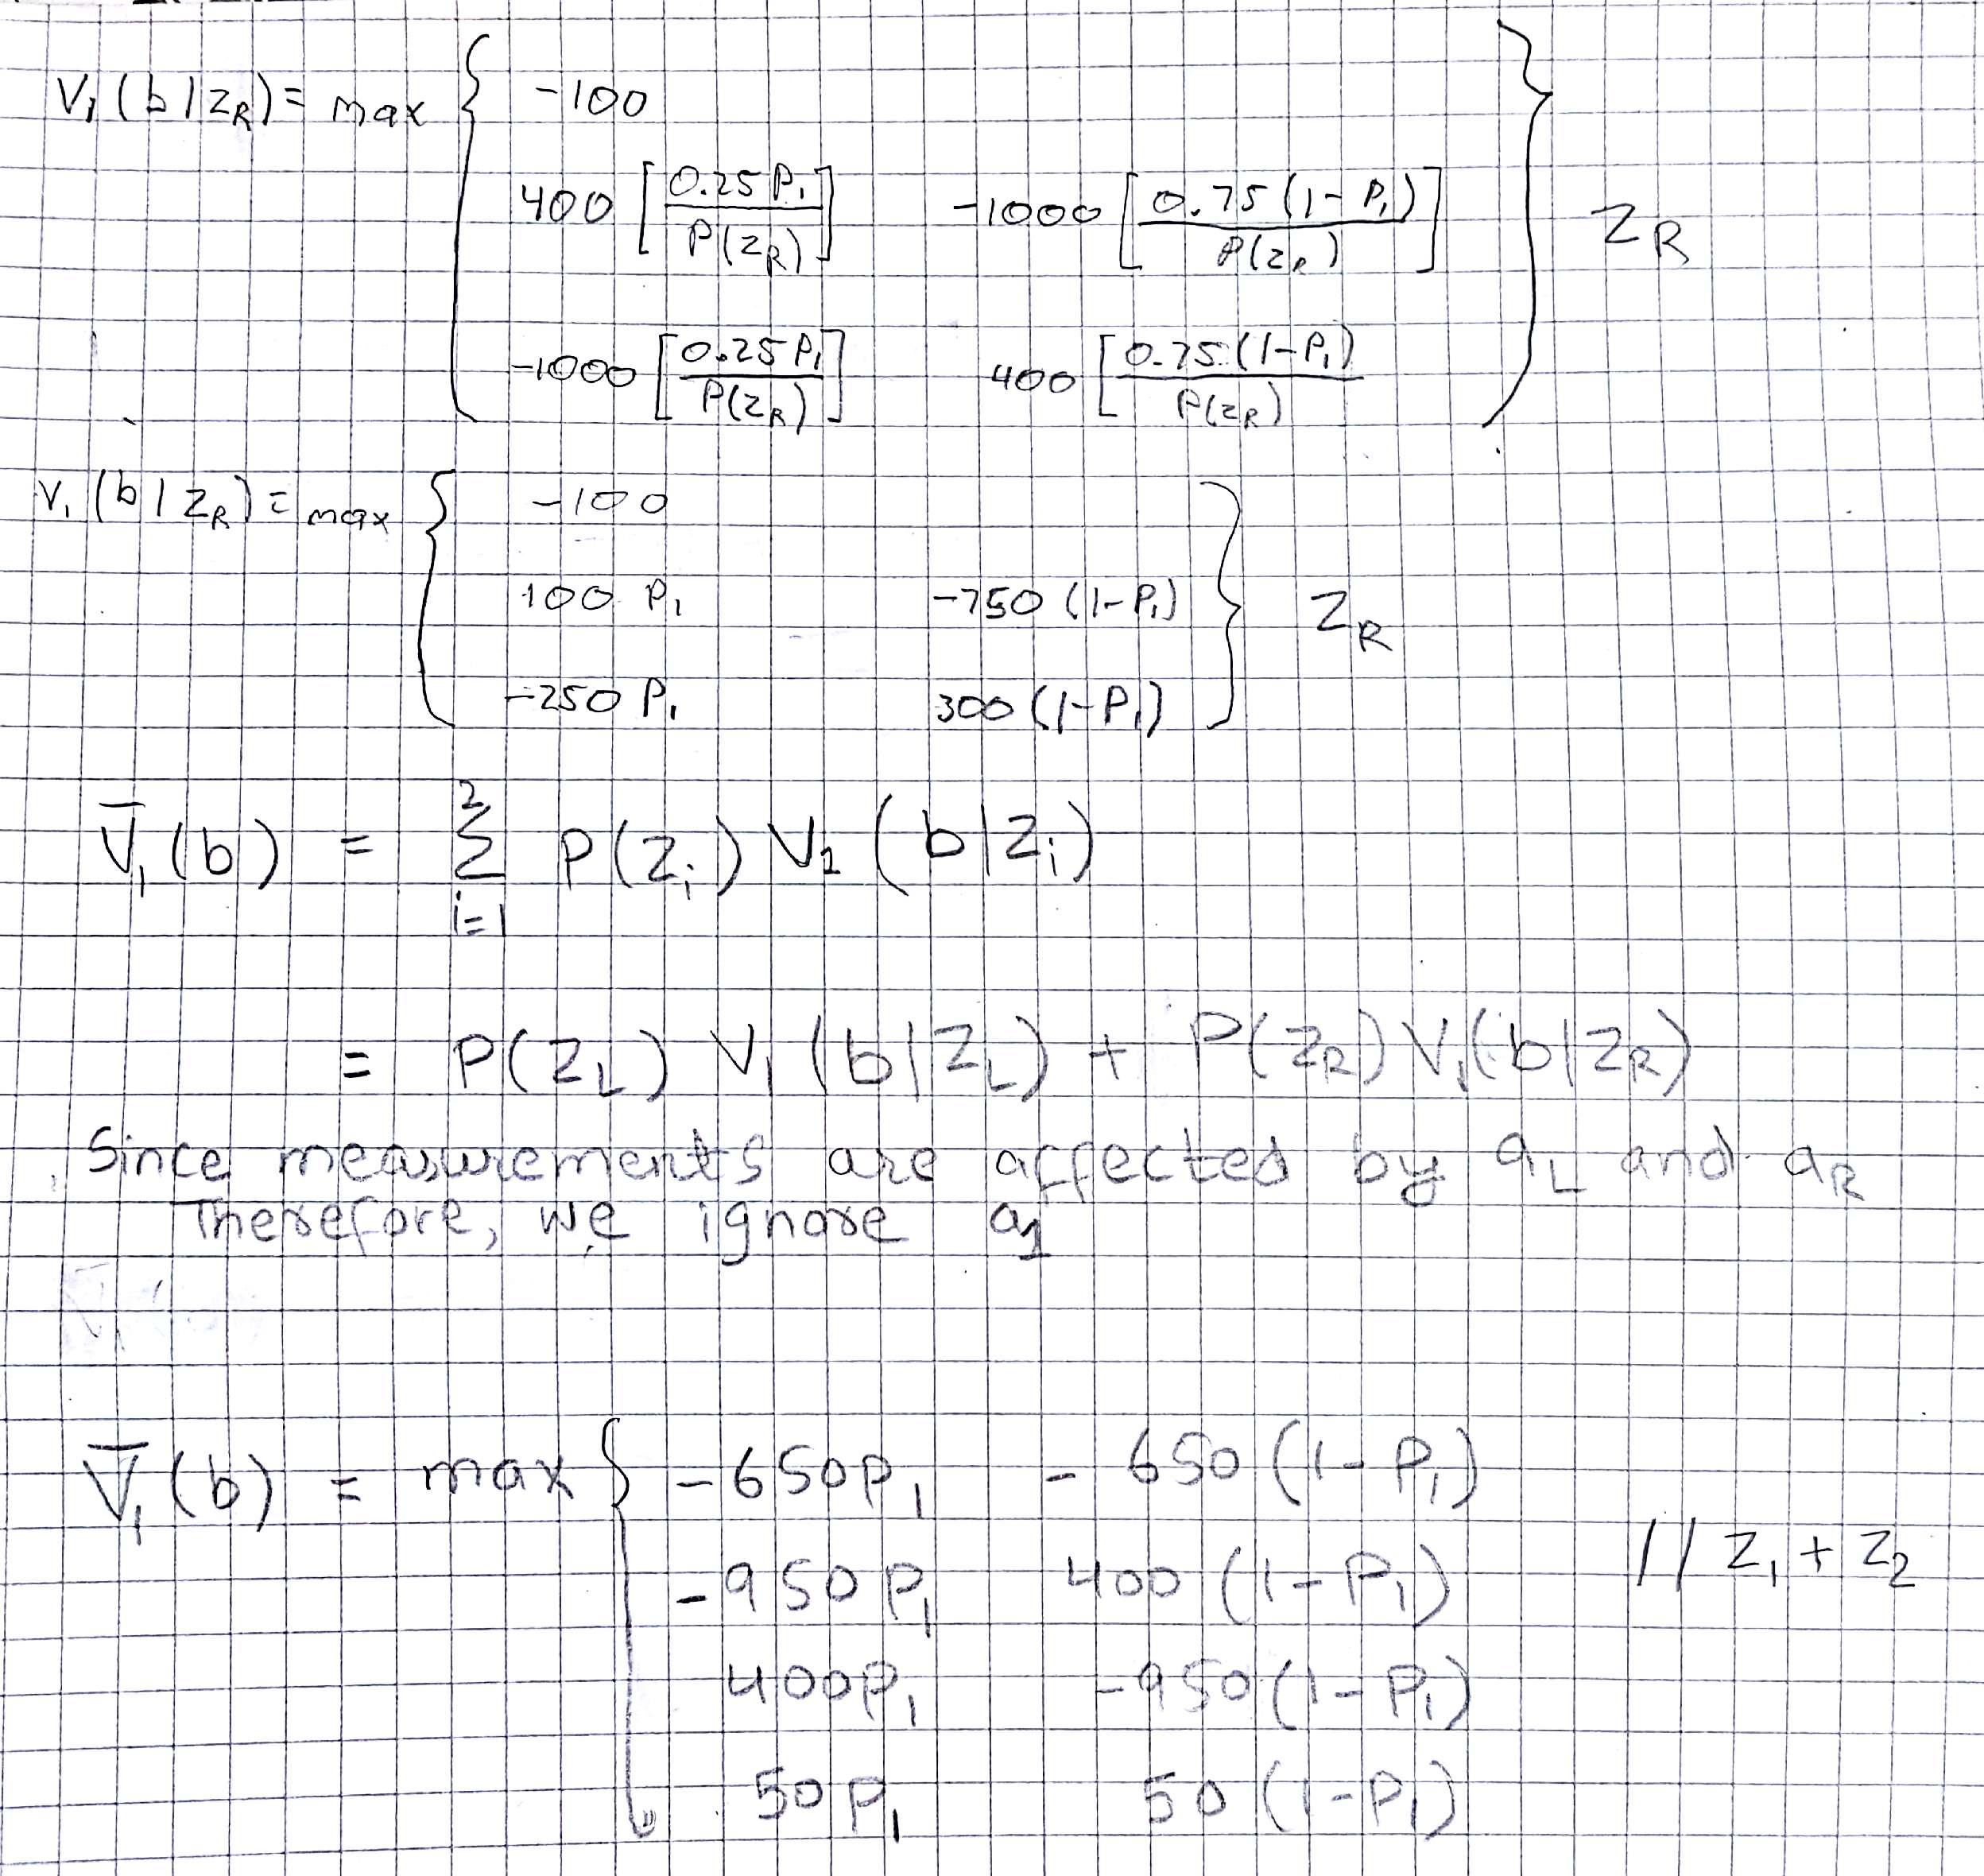 V₁ (b | z_R) = max { -100
400 [0.25 P₁ / P(z_R)] -1000 [0.75 (1 - P₁) / P(z_R)] } z_R
-1000 [0.25 P₁ / P(z_R)] 400 [0.75 (1-P₁) / P(z_R)
V₁ (b | z_R) = max { -100
100 P₁ -750 (1-P₁) } z_R
-250 P₁ 300 (1-P₁)
V̄₁ (b) = Σ_{i=1}^{2} P(z_i) V₁ (b | z_i)
= P(z_L) V₁ (b | z_L) + P(z_R) V₁ (b | z_R)
Since measurements are affected by a_L and a_R
Therefore, we ignore a₁
V̄₁ (b) = max { -650 P₁ - 650 (1 - P₁)
-950 P₁ 400 (1 - P₁) // z₁ + z₂
400 P₁ -950 (1 - P₁)
50 P₁ 50 (1-P₁)